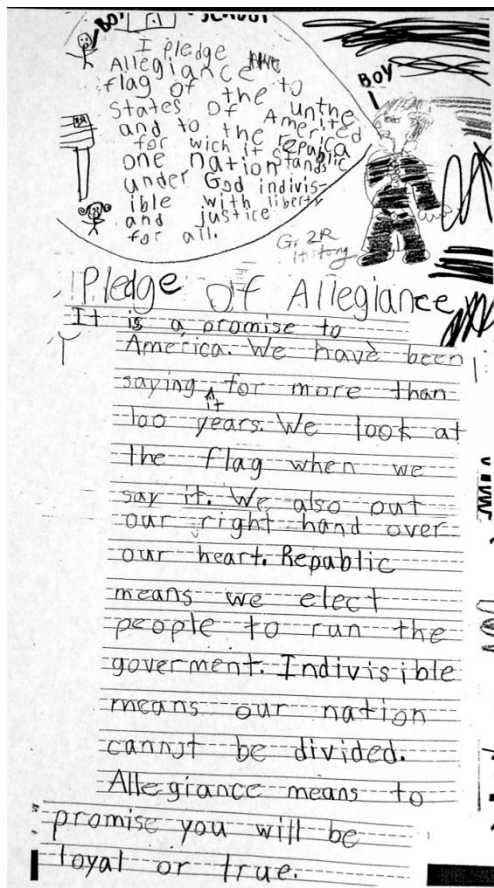 BOY
SCHOOL
I pledge
Allegiance
flag of the to
States of the unthe
and to the America united
for wich it republic
one nation stands
under God indivis-
ible with liberty
and justice
for all.
BOY
Gr 2R
itstory
Pledge Of Allegiance
It is a promise to
America. We have been
saying ^ for more than
it
100 years. We look at
the flag when we
say it. We also out
our right hand over
our heart. Republic
means we elect
people to run the
goverment. Indivisible
means our nation
cannot be divided.
Allegiance means to
promise you will be
loyal or true.